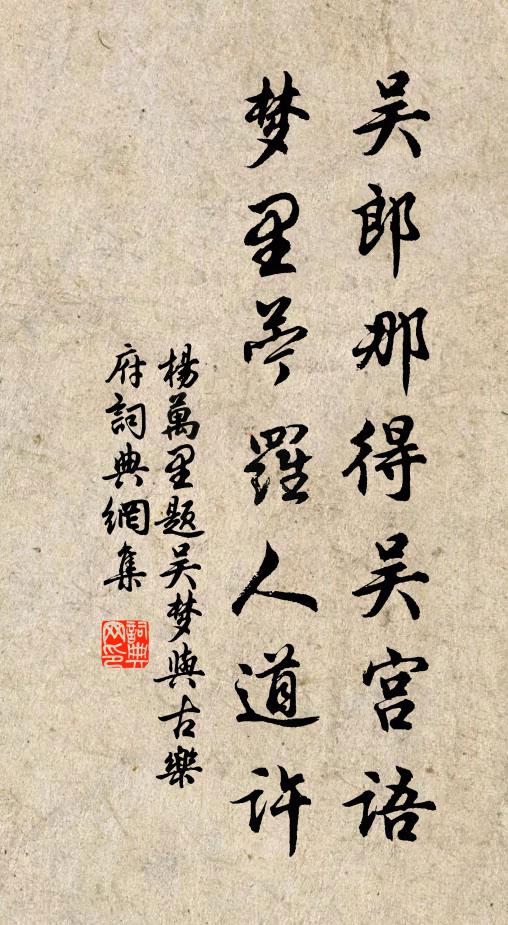 吴郎那得吴宫语
梦里苧羅人道许
楊萬里题吴梦與古樂
府詞典網集
詞典網印